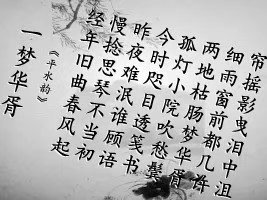 一梦华胥
《平水韵》
经年旧曲春风起
慢捻思琴不当初
昨夜难泯谁顾语
今时咫目透笺书
孤灯小院吹愁鬓
两地枯肠梦华胥
细雨窗前都几许
帘摇影曳泪中沮